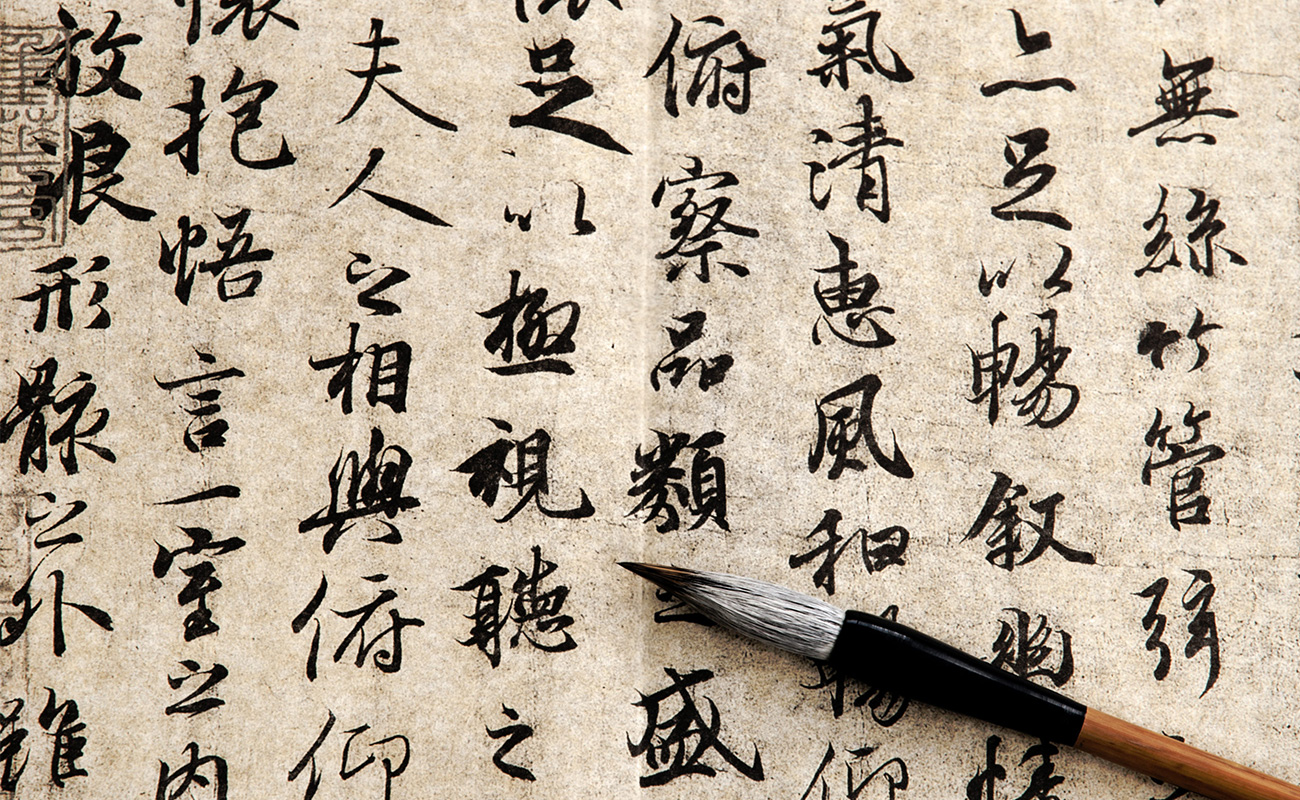 無絲竹管弦
亦足以暢叙幽情
氣清惠風和暢仰
俯察品類之盛
懷足以極視聽之
夫人之相與俯仰
懷抱悟言一室之內
放浪形骸之外雖